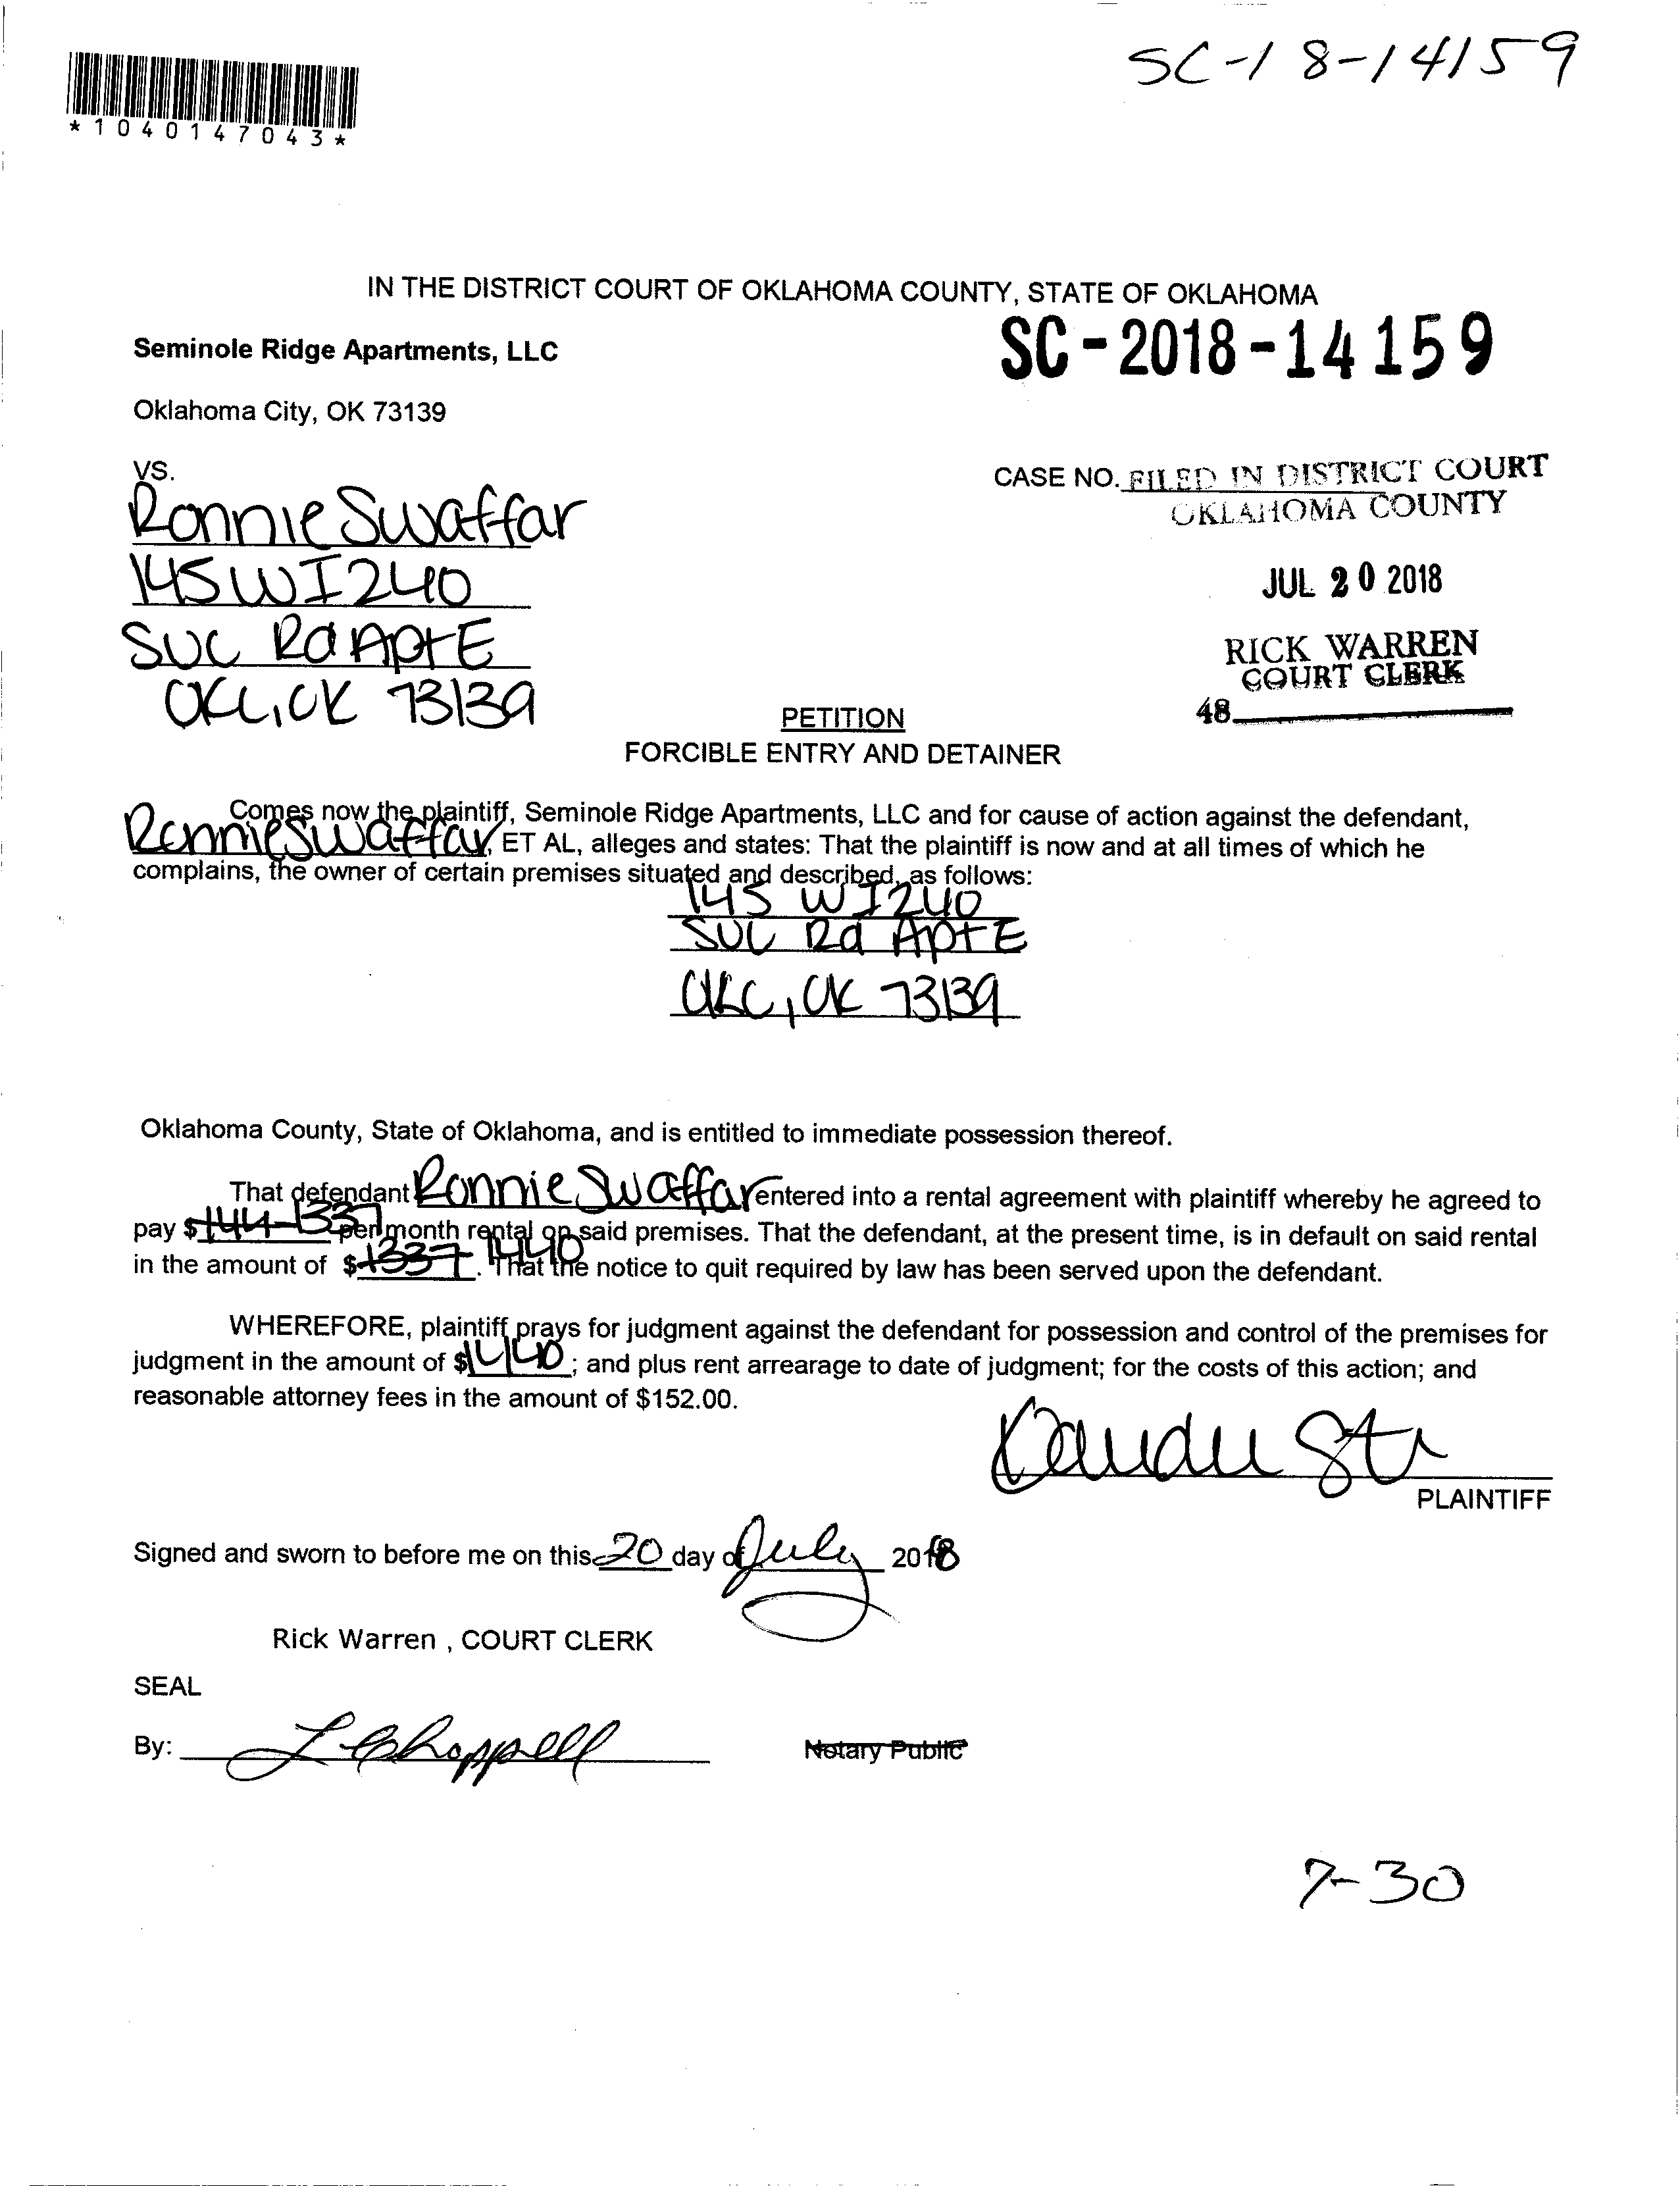 SC-18-14159
*1040147043*
IN THE DISTRICT COURT OF OKLAHOMA COUNTY, STATE OF OKLAHOMA
Seminole Ridge Apartments, LLC
SC-2018-14159
Oklahoma City, OK 73139
VS.
CASE NO. FILED IN DISTRICT COURT
OKLAHOMA COUNTY
Ronnie Swaffar
145 W I 240
JUL 20 2018
SVC Rd Apt E
RICK WARREN
COURT CLERK
OKC, OK 73139
48
PETITION
FORCIBLE ENTRY AND DETAINER
Comes now the plaintiff, Seminole Ridge Apartments, LLC and for cause of action against the defendant,
Ronnie Swaffar, ET AL, alleges and states: That the plaintiff is now and at all times of which he
complains, the owner of certain premises situated and described, as follows:
145 W I 240
SVC Rd Apt E
OKC, OK 73139
Oklahoma County, State of Oklahoma, and is entitled to immediate possession thereof.
That defendant Ronnie Swaffar entered into a rental agreement with plaintiff whereby he agreed to
pay $ 1337 per month rental on said premises. That the defendant, at the present time, is in default on said rental
in the amount of $ 1337 1440. That the notice to quit required by law has been served upon the defendant.
WHEREFORE, plaintiff prays for judgment against the defendant for possession and control of the premises for
judgment in the amount of $1440; and plus rent arrearage to date of judgment; for the costs of this action; and
reasonable attorney fees in the amount of $152.00.
PLAINTIFF
Signed and sworn to before me on this 20 day of July 2018
Rick Warren , COURT CLERK
SEAL
By: L Chappell
Notary Public
7-30